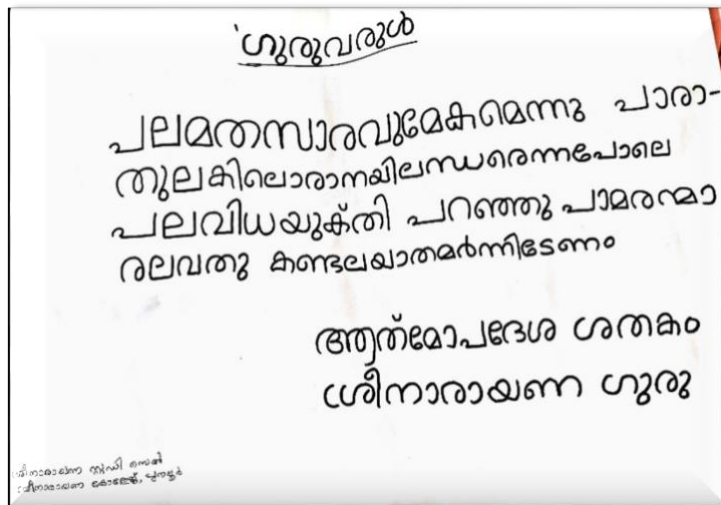 'ഗുരുവരുൾ
പലമതസാരവുമേകമെന്നു പാരാ-
തുലകിലൊരാനയിലന്ധരെന്നപോലെ
പലവിധയുക്തി പറഞ്ഞു പാമരന്മാ
രലവതു കണ്ടലയാതമർന്നിടേണം
ആത്മോപദേശ ശതകം
ശ്രീനാരായണ ഗുരു
ശ്രീനാരായണ സ്റ്റഡി സെന്റർ
ശ്രീനാരായണ കോളേജ്, പുനലൂർ